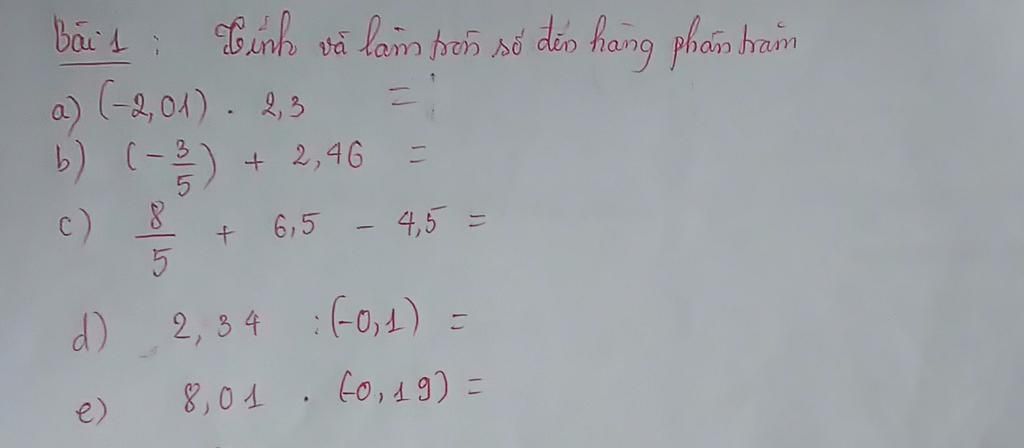 Bài 1 : Tính và làm tròn số đến hàng phần trăm
a) (-2,01) . 2,3 =
b) (-3/5) + 2,46 =
c) 8/5 + 6,5 - 4,5 =
d) 2,34 : (-0,1) =
e) 8,01 . (-0,19) =